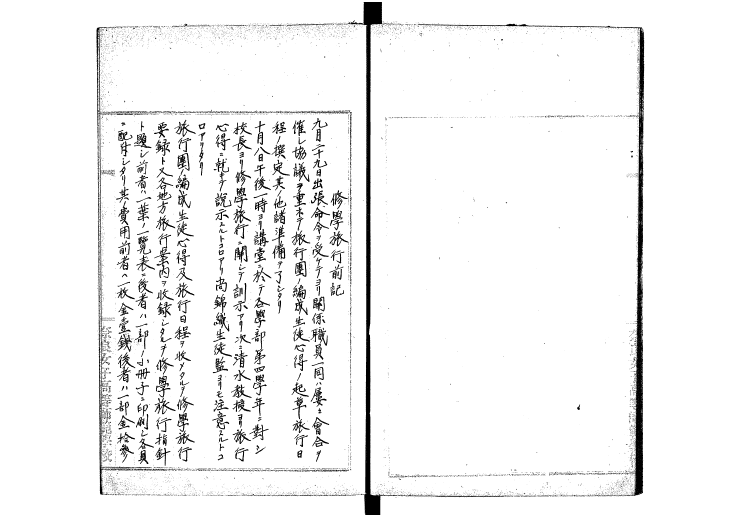 修學旅行前記
九月二十九日出張命令ヲ受ケテヨリ關係職員一同ハ屢〻會合ヲ
催シ協議ヲ重ネテ旅行團ノ編成生徒心得ノ起草旅行日
程ノ撰定其ノ他諸準備ヲ了シタリ
十月八日午後一時ヨリ講堂ニ於テ各學部第四學年ニ對シ
校長ヨリ修學旅行ニ關シテ訓示アリ次ニ清水教授ヨリ旅行
心得ニ就キテ說示スルトコロアリ尚錦織生徒監ヨリモ注意スルトコ
ロアリタリ
旅行團ノ編成生徒心得及旅行日程ヲ收メタルヲ修學旅行
要錄ト又各地方旅行案內ヲ收録シタルヲ修學旅行指針
ト題シ前者ハ一葉ノ一覽表ニ後者ハ一部ノ小冊子ニ印刷シ各員
ニ配付シタリ其ノ費用前者ハ一枚金壹錢後者ハ一部金拾參
奈良女子高等師範學校